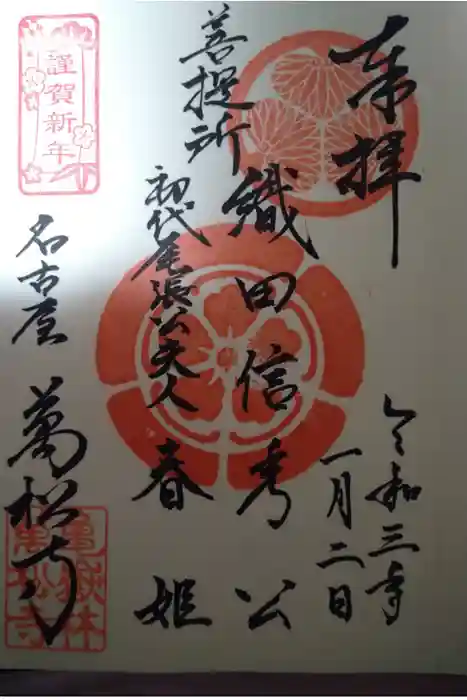 奉拝
令和三年
一月二日
菩提所
織田信秀公
初代尾張公夫人
春姫
謹賀新年
名古屋
萬松寺
亀嶽林
萬松寺